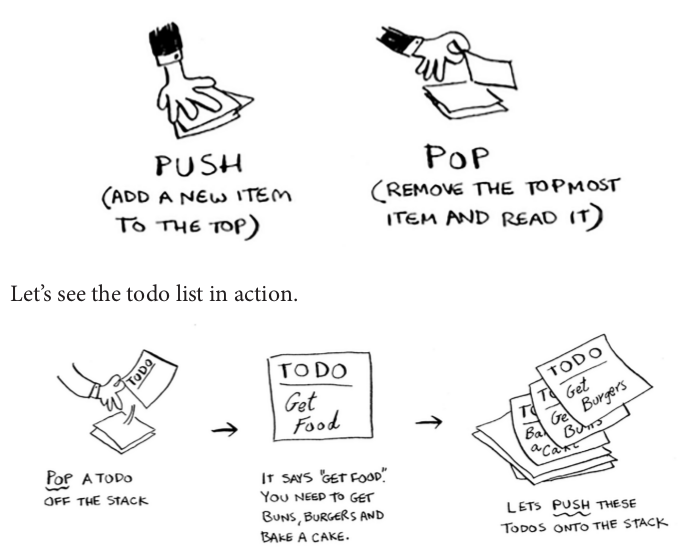 PUSH
(ADD A NEW ITEM
TO THE TOP)
POP
(REMOVE THE TOPMOST
ITEM AND READ IT)
Let's see the todo list in action.
TODO
POP A TODO
OFF THE STACK
TODO
Get
Food
IT SAYS "GET FOOD".
YOU NEED TO GET
BUNS, BURGERS AND
BAKE A CAKE.
TODO
Get
Burgers
TO
Ge
Buns
TO
Ba
a Cake
LETS PUSH THESE
TODOS ONTO THE STACK